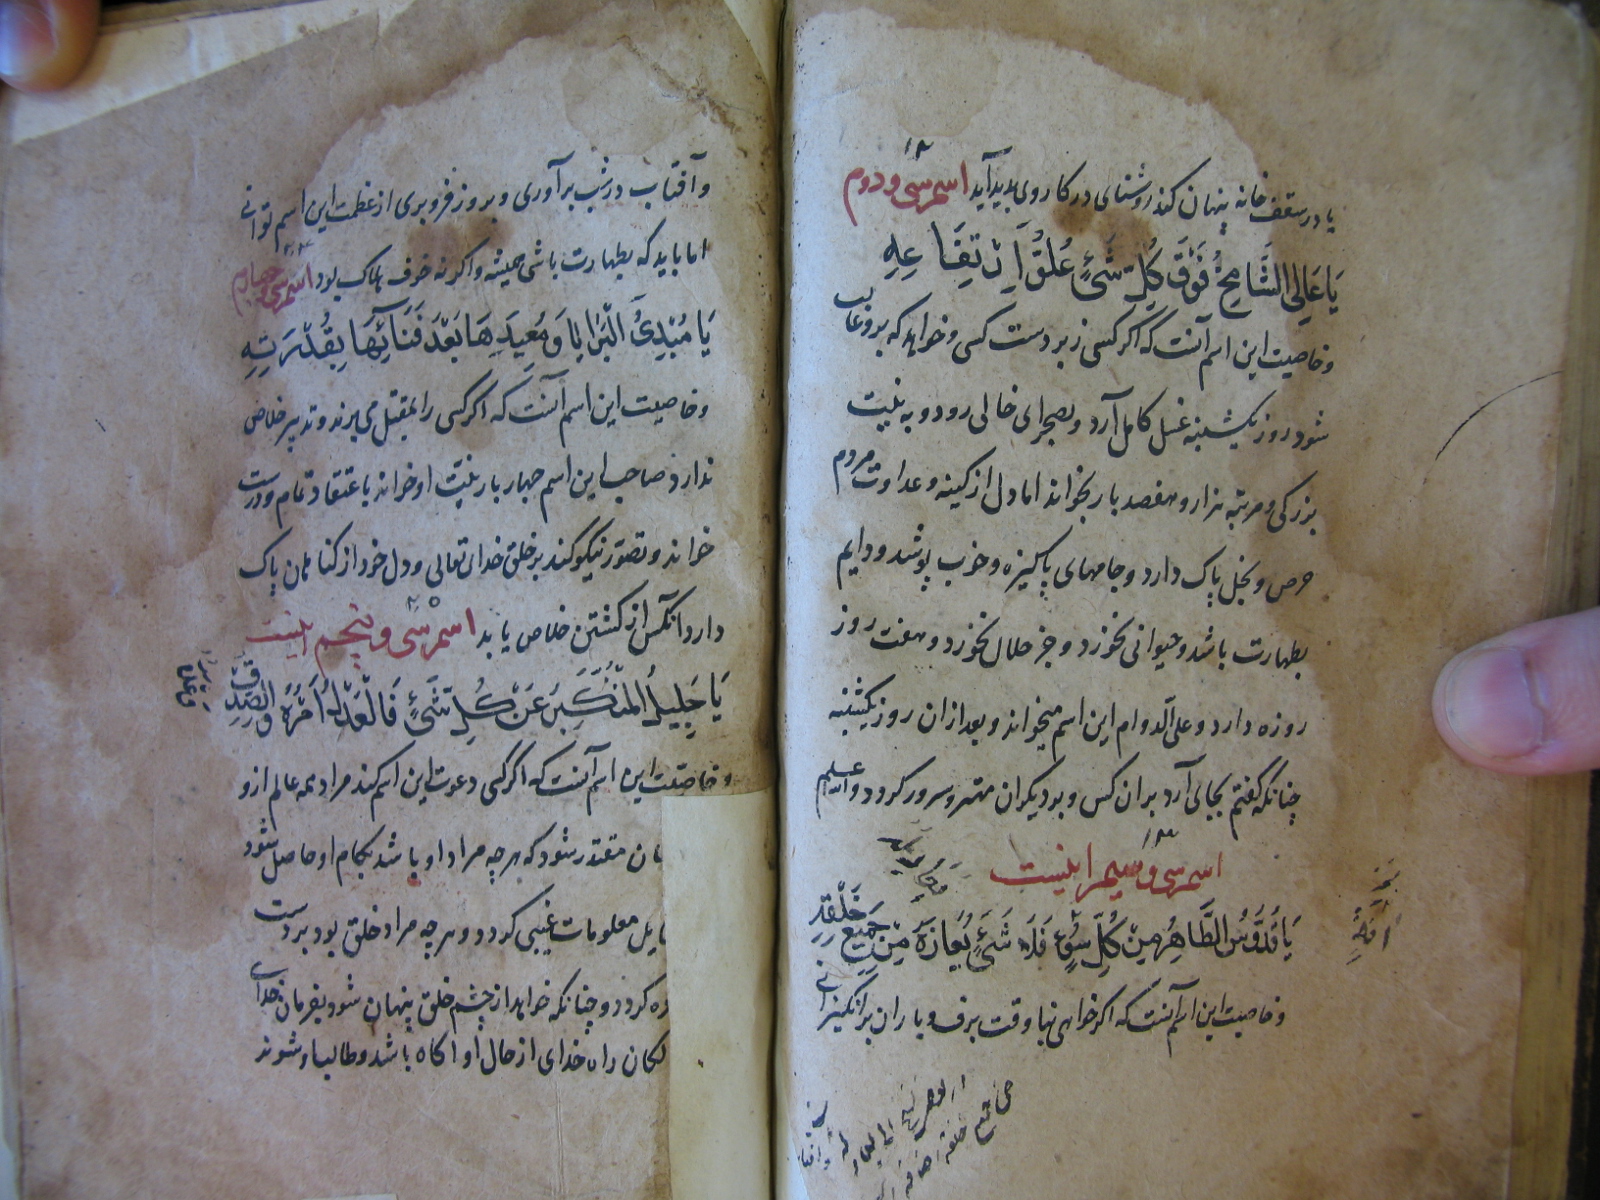 یا در سقف خانه پنهان کند روشنای در کار وی پدید آید اسم سی و دوم
یَا عَالِیَ الشَّامِخُ فَوْقَ کُلِّ شَیْءٍ عُلُوُّ اِرْتِفَاعِهِ
و خاصیت این اسم آنست که اگر کسی زبردست کسی و خواهد که برو غالب
شود روز یکشنبه غسل کامل آرد و بصحرای خالی رود و به نیت
بزرکی و مرتبه هزار و هفصد بار بخواند اما دل از کینه و عداوت مردم
حرص و بخل پاک دارد و جامهای پاکیزه و خوب پوشد و دایم
بطهارت باشد و حیوانی نخورد و جز حلال نخورد و هفت روز
روزه دارد و علی الدوام این اسم میخواند و بعد از ان روز یکشنبه
چنانکه کفتم بجای آرد بران کس و بر دیکران مهتر و سرور کردد و الله اعلم
اسم سی و سیم اینست
یَا قُدُّوسُ الطَّاهِرُ مِنْ کُلِّ سُوْءٍ فَلَا شَیْءَ یُعَازُهُ مِنْ جَمِیعِ خَلْقِهِ
و خاصیت این اسم آنست که اکر خواهی نها وقت برف و باران برانکیزانی
و آفتاب در شب برآوری و بروز فرو بری از عظمت این اسم توانی
اما باید که بطهارت باشی همیشه و اکر نه خوف هلاک بود اسم سی و چهارم
یَا مُبْدِئُ الْبَرَایَا وَ مُعِیدَهَا بَعْدَ فَنَائِهَا بِقُدْرَتِهِ
و خاصیت این اسم آنست که اکر کسی را بقتل می برند و تدبیر خلاص
ندارد صاحب این اسم چهار بار بنیت او خواند باعتقاد تمام و درست
خواند و تصور نیکو کند بر خلق خدای تعالی و دل خود از کناهان پاک
دارد آنکس از کشتن خلاص یابد اسم سی و پنجم اینست
یَا جَلِیلُ الْمُتَکَبِّرُ عَنْ کُلِّ شَیْءٍ فَالْعَدْلُ اَمْرُهُ وَ الصِّدْقُ
وعده
و خاصیت این اسم آنست که اکر کسی دعوت این اسم کند مراد همه عالم ازو
ان مقتدر شود که هر چه مراد او باشد بکام او حاصل شود
یل معلومات غیبی کردد و هر چه مراد خلق بود بر دست
ه کردد و چنانکه خواهد از چشم خلق پنهان شود بفرمان خدای
لکان راه خدای از حال او اکاه باشد و طالب او شوند